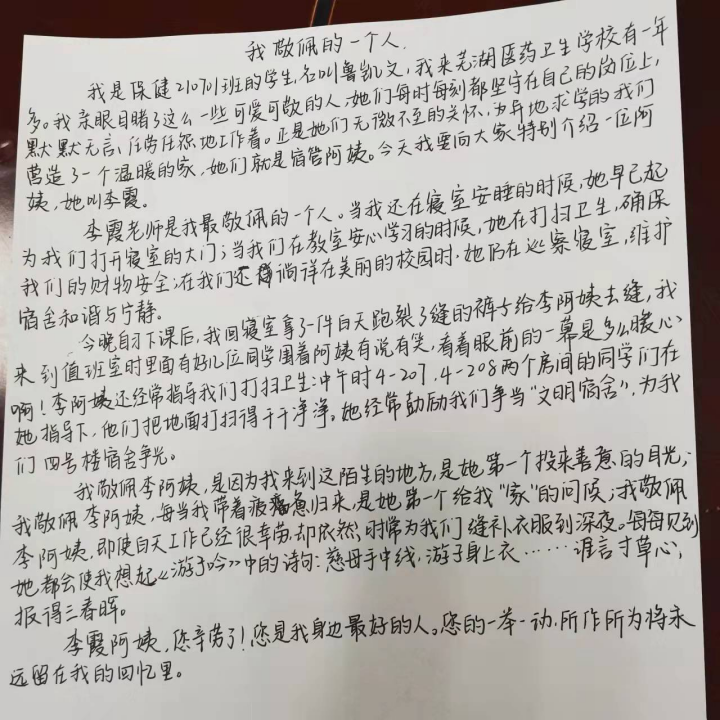 我敬佩的一个人.
我是保健210701班的学生,名叫鲁凯文,我来芜湖医药卫生学校有一年
多。我亲眼目睹了这么一些可爱可敬的人,她们每时每刻都坚守在自己的岗位上,
默默无言、任劳任怨地工作着。正是她们无微不至的关怀,为异地求学的我们
营造了一个温暖的家,她们就是宿管阿姨。今天我要向大家特别介绍一位阿
姨,她叫李霞。
李霞老师是我最敬佩的一个人。当我还在寝室安睡的时候,她早已起
为我们打开寝室的大门;当我们在教室安心学习的时候,她在打扫卫生,确保
我们的财物安全;在我们还徜徉在美丽的校园时,她仍在巡察寝室,维护
宿舍和谐与宁静。
今晚自习下课后,我回寝室拿了一件白天跑裂了缝的裤子给李阿姨去缝,我
来到值班室时里面有好几位同学围着阿姨有说有笑,看着眼前的一幕是多么暖心
啊!李阿姨还经常指导我们打扫卫生:中午时4-207、4-208两个房间的同学们在
她指导下,他们把地面打扫得干干净净。她经常鼓励我们争当“文明宿舍”,为我
们四号楼宿舍争光。
我敬佩李阿姨,是因为我来到这陌生的地方,是她第一个投来善意的目光;
我敬佩李阿姨,每当我带着疲惫归来,是她第一个给我“家”的问候;我敬佩
李阿姨,即使白天工作已经很辛劳,却依然时常为我们缝补衣服到深夜。每每见到
她都会使我想起《游子吟》中的诗句:慈母手中线,游子身上衣……谁言寸草心,
报得三春晖。
李霞阿姨,您辛劳了!您是我身边最好的人。您的一举一动,所作所为将永
远留在我的回忆里。